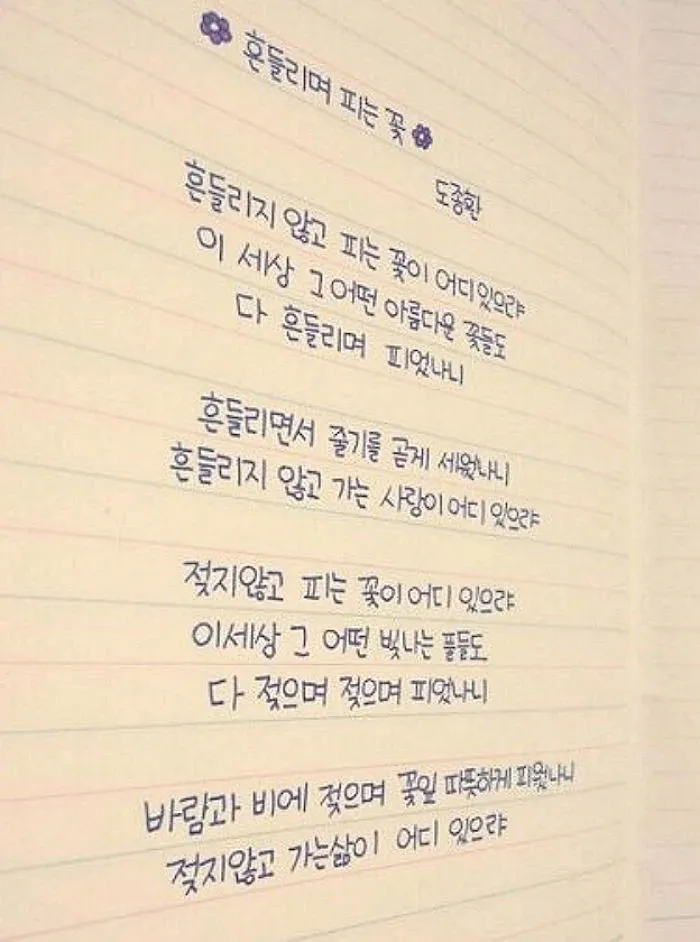 흔들리며 피는 꽃
도종환
흔들리지 않고 피는 꽃이 어디 있으랴
이 세상 그 어떤 아름다운 꽃들도
다 흔들리며 피었나니
흔들리면서 줄기를 곧게 세웠나니
흔들리지 않고 가는 사랑이 어디 있으랴
젖지않고 피는 꽃이 어디 있으랴
이세상 그 어떤 빛나는 풀들도
다 젖으며 젖으며 피었나니
바람과 비에 젖으며 꽃잎 따뜻하게 피웠나니
젖지않고 가는삶이 어디 있으랴